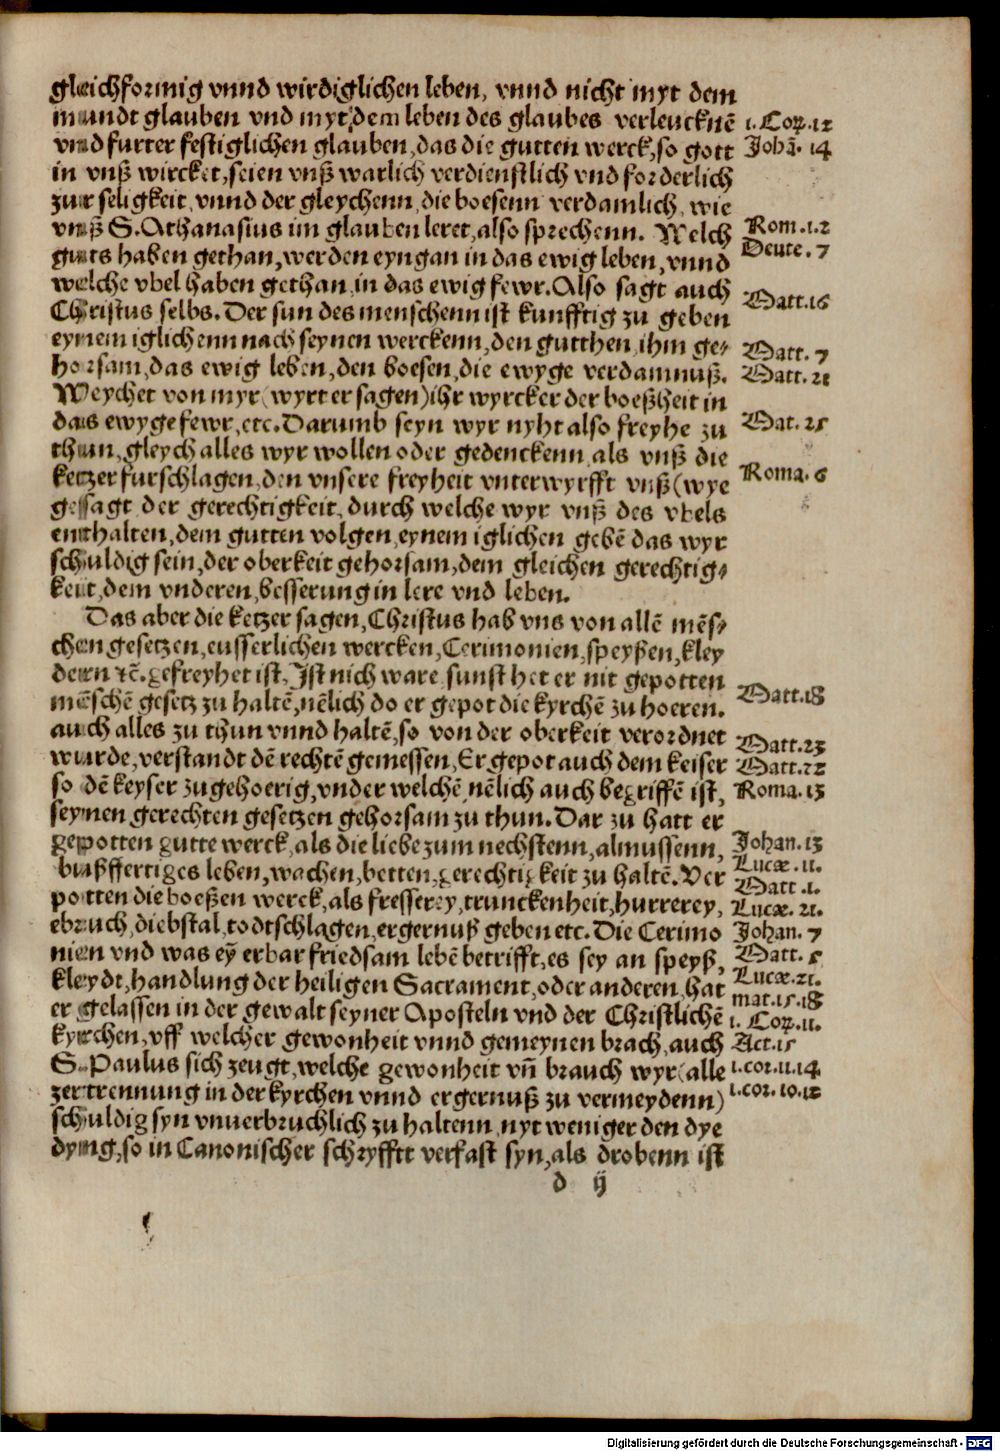 gleichformig vnnd wirdiglichen leben, vnnd nicht myt dem
mundt glauben vnd myt dem leben des glaubes verleucknē
vnd furter festiglichen glauben, das die gutten werck, so gott
in vnß wircket, seien vnß warlich verdienstlich vnd forderlich
zur seligkeit, vnnd der gleychenn, die boesenn verdamlich, wie
vnß S. Athanasius im glauben leret, also sprechenn. Welch
guts haben gethan, werden eyngan in das ewig leben, vnnd
welche vbel haben gethan, in das ewig fewr. Also sagt auch
Christus selbs. Der sun des menschenn ist kunfftig zu geben
eynem iglichenn nach seynen werckenn, den gutthen, ihm ge⸗
horsam, das ewig leben, den boesen, die ewyge verdamnuß.
Weychet von myr (wyrt er sagen) ihr wyrcker der boeßheit in
das ewyge fewr, etc. Darumb seyn wyr nyht also freyhe zu
thun, gleych alles wyr wollen oder gedenckenn, als vnß die
ketzer furschlagen, den vnsere freyheit vnterwyrfft vnß (wye
gesagt der gerechtigkeit, durch welche wyr vnß des vbels
enthalten, dem gutten volgen, eynem iglichen gebē das wyr
schuldig sein, der oberkeit gehorsam, dem gleichen gerechtig⸗
keit, dem vnderen, besserung in lere vnd leben.
Das aber die ketzer sagen, Christus hab vns von allē mēs⸗
chen gesetzen, eusserlichen wercken, Cerimonien, speyßen, kley
dern ꝛc̄. gefreyhet ist, Ist nich ware, sunst het er nit gepotten
mēschē gesetz zu haltē, nēlich do er gepot die kyrchē zu hoeren.
auch alles zu thun vnnd haltē, so von der oberkeit verordnet
wurde, verstandt dē rechtē gemessen, Er gepot auch dem keiser
so dē keyser zugehoerig, vnder welchē nēlich auch begriffē ist,
seynen gerechten gesetzen gehorsam zu thun. Dar zu hatt er
gepotten gutte werck, als die liebe zum nechstenn, almussenn,
bußffertiges leben, wachen, betten, gerechtigkeit zu haltē. Ver
potten die boeßen werck, als fresserey, trunckenheit, hurrerey,
ebruch, diebstal, todtschlagen, ergernuß geben etc. Die Cerimo
nien vnd was eȳ erbar friedsam lebē betrifft, es sey an speyß,
kleydt, handlung der heiligen Sacrament, oder anderen, hat
er gelassen in der gewalt seyner Aposteln vnd der Christlichē
kyrchen, vff welcher gewonheit vnnd gemeynen brach, auch
S. Paulus sich zeugt, welche gewonheit vn̄ brauch wyr (alle
zertrennung in der kyrchen vnnd ergernuß zu vermeydenn)
schuldig syn vnuerbruchlich zu haltenn, nyt weniger den dye
dyng, so in Canonischer schryfftt verfast syn, als drobenn ist
d ij
1. Coꝝ. 12
Johā. 14
Rom. 1. 2
Deute. 7
Matt. 16
Matt. 7
Matt. 21
Mat. 25
Roma. 6
Matt. 18
Matt. 23
Matt. 22
Roma. 13
Johan. 13
Lucæ. 11.
Matt. 1.
Lucæ. 21.
Johan. 7
Matt. 5
Lucæ. 21.
mat. 15. 18
1. Coꝝ. 11.
Act. 15
1. cor. 11. 14
1. cor. 10. 12
Digitalisierung gefördert durch die Deutsche Forschungsgemeinschaft - DFG